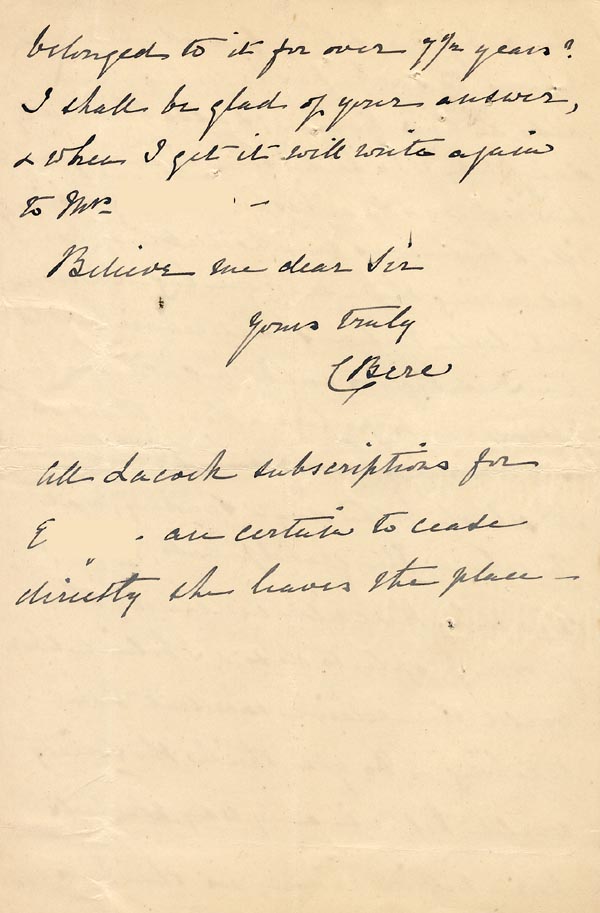 belonged to it for over 7½ years?
I shall be glad of your answer,
& when I get it will write again
to Mrs -
Believe me dear Sir
Yours truly
C Bere
All Lacock subscriptions for
E - are certain to cease
directly she leaves the place -